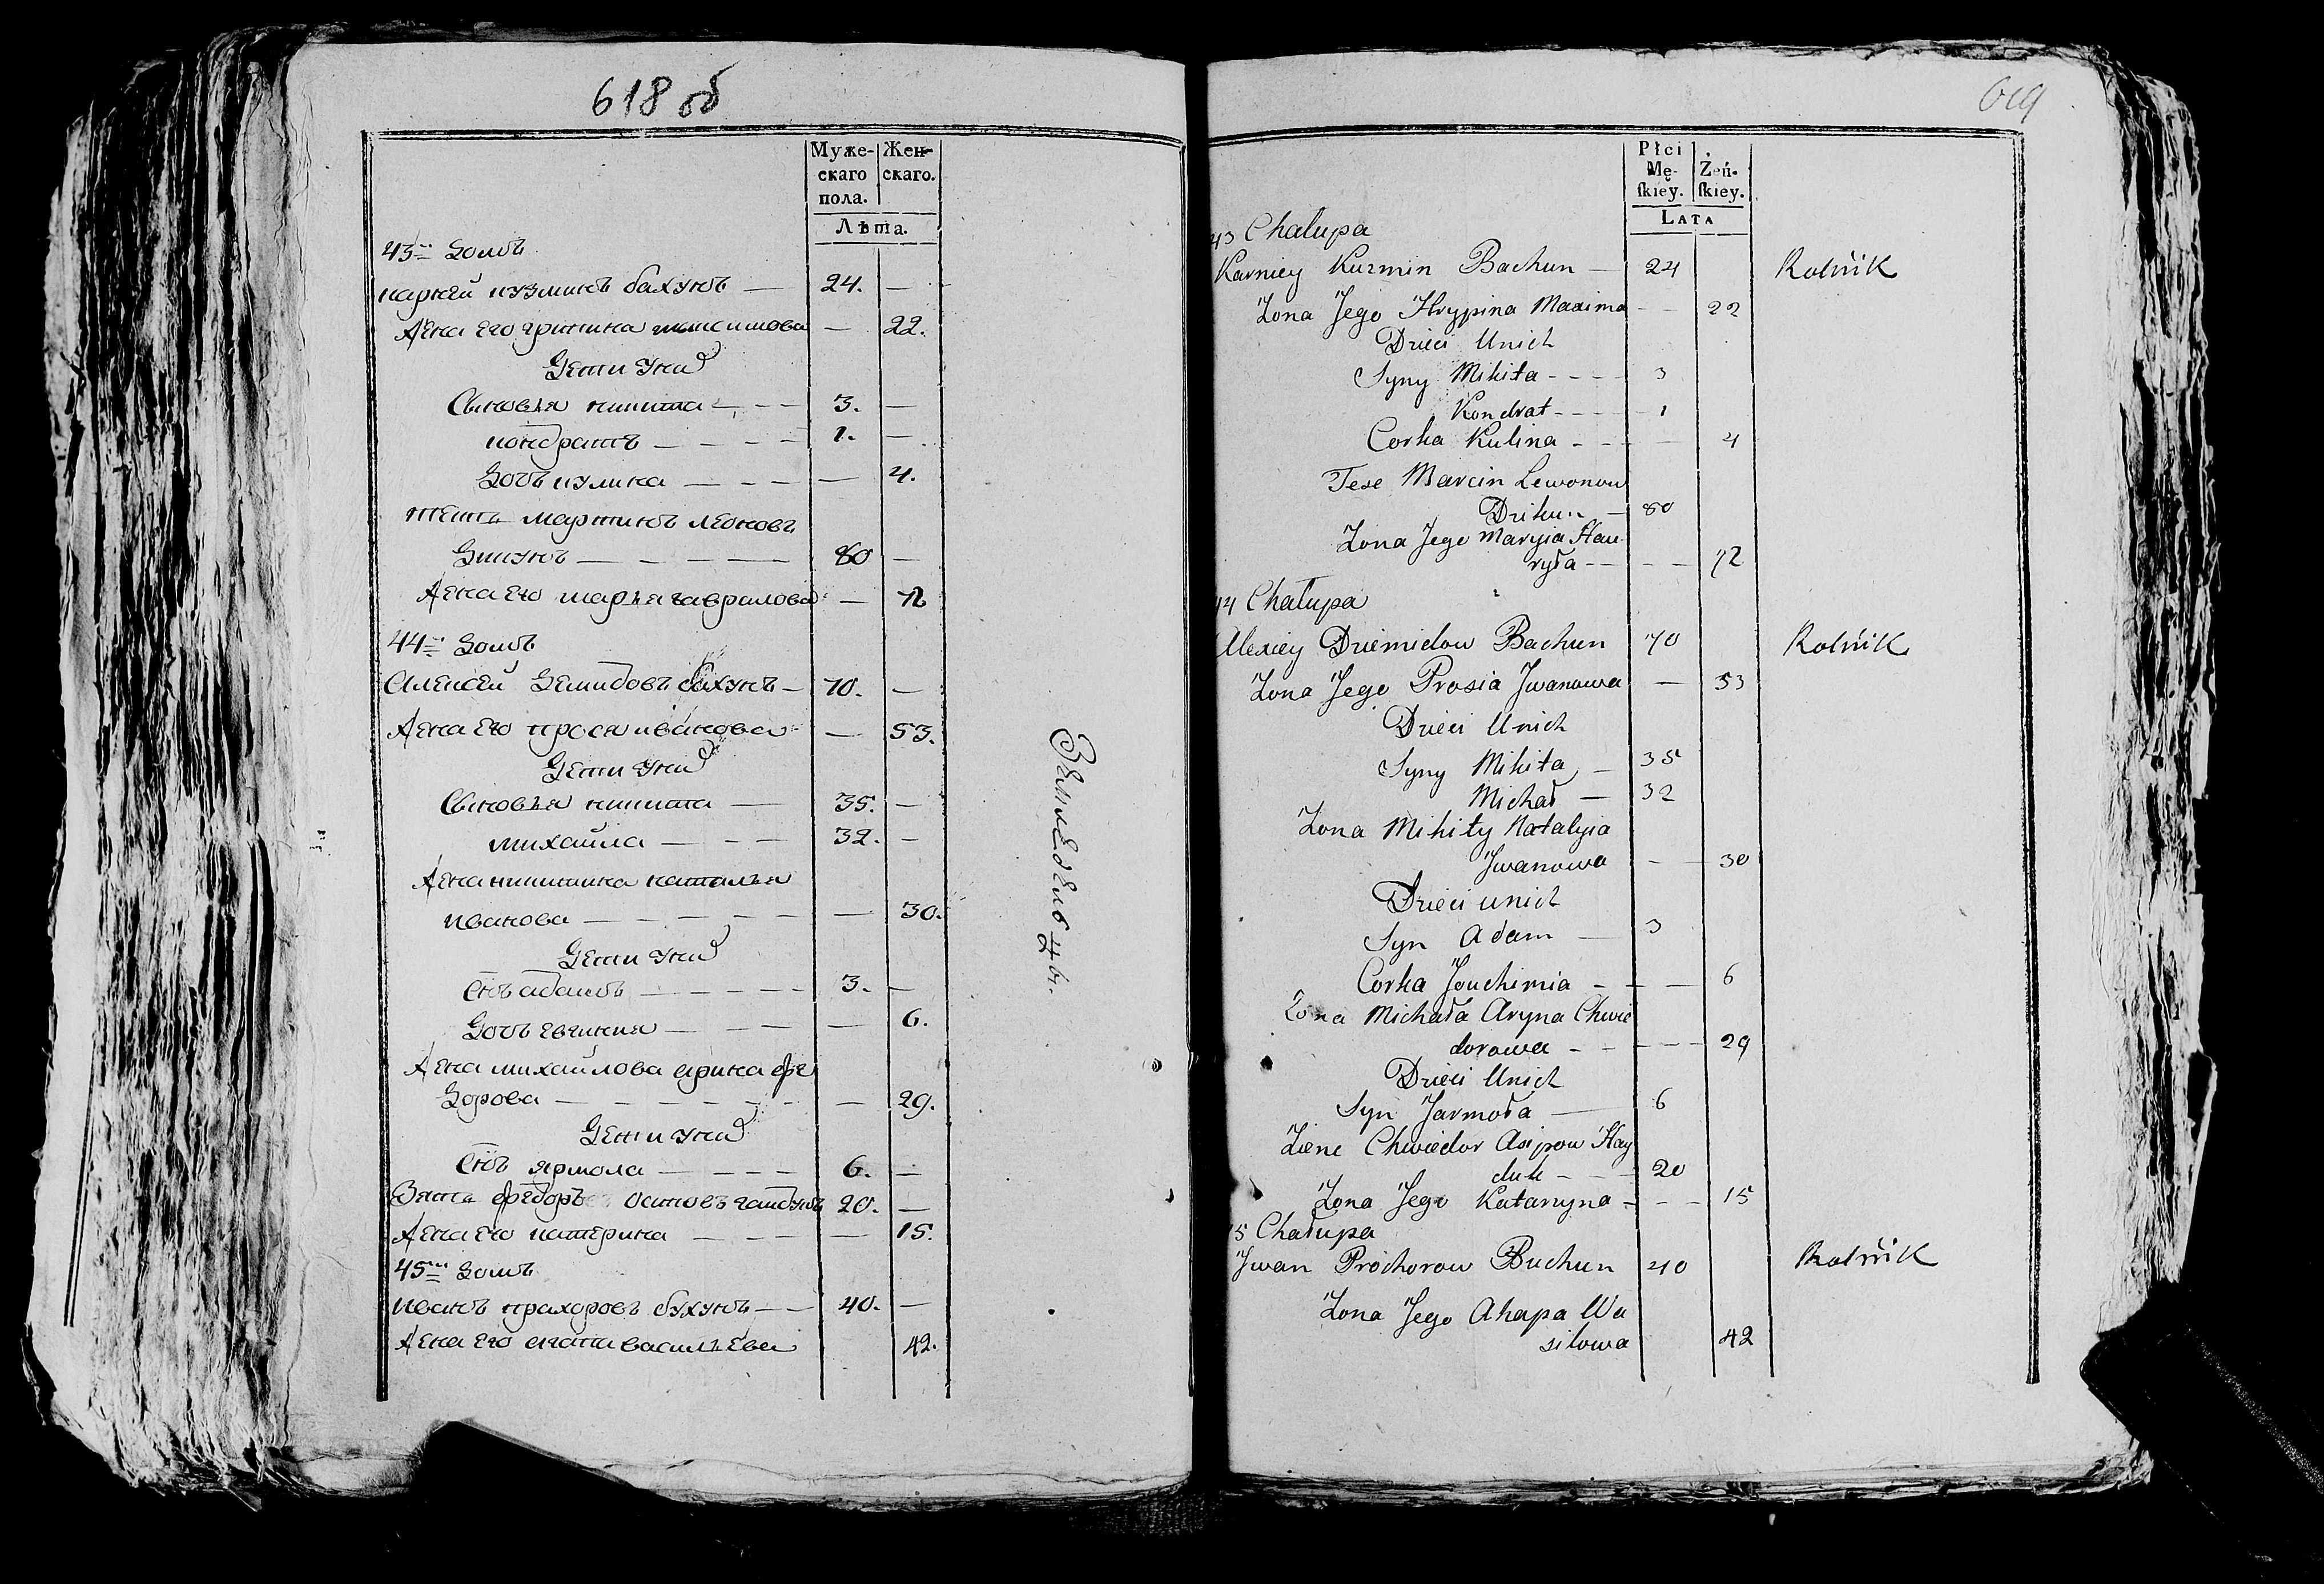 618 об
Муже-
скаго
пола.
Жен-
скаго.
Лѣта.
43й домъ
карней кузминъ бахунъ — 24. —
Жена его грипина максимова — 22.
Дети у них
Сыновья никита — 3. —
кондратъ — 1. —
Дочь кулина — 4.
тесть мартинъ леоновъ
Зикунъ — 80 —
Жена его марья гаврилова — 72
44й домъ
Алексей демидовъ бахунъ — 70. —
Жена его прося иванова — 53.
Дети у них
Сыновья никита — 35. —
михайла — 32. —
Жена никитина наталья
иванова — 30.
Дети у них
Снъ адамъ — 3. —
Дочь евгиния — 6.
Жена михайлова арина фе
дорова — 29.
Дети у них
Снъ ярмола — 6. —
Зять федоръ осиповъ гайдукъ 20. —
Жена его катерина — 15.
45й домъ
иванъ прахоровъ бухунъ — 40. —
Жена его агапа васильева 42.
Земледельцы.
619
Płci
Mę-
ſkiey.
Żeń-
ſkiey.
Lata
43 Chałupa
Karniey Kuzmin Bachun — 24 Rolnik
Żona Jego Hrypina Maxima — 22
Dzieci Unich
Syny Mikita — 3
Kondrat — 1
Corka Kulina — 4
Tesc Marcin Lewonow
Dzikun — 80
Żona Jego Maryia Hau
ryła — 72
44 Chałupa
Alexiey Dziemidow Bachun 70 Rolnik
Żona Jego Prosia Jwanowa — 53
Dzieci Unich
Syny Mikita — 35
Michał — 32
Żona Mikity Natalyia
Jwanowa — 30
Dzieci unich
Syn Adam — 3
Corka Jouchimia — 6
Żona Michała Aryna Chwie
dorowa — 29
Dzieci Unich
Syn Jarmoła — 6
Ziene Chwiedor Asipow Hay
duk — 20
Żona Jego Katarzyna — 15
5 Chałupa
Jwan Prochorow Buchun 40 Rolnik
Żona Jego Ahapa Wa
silowa 42